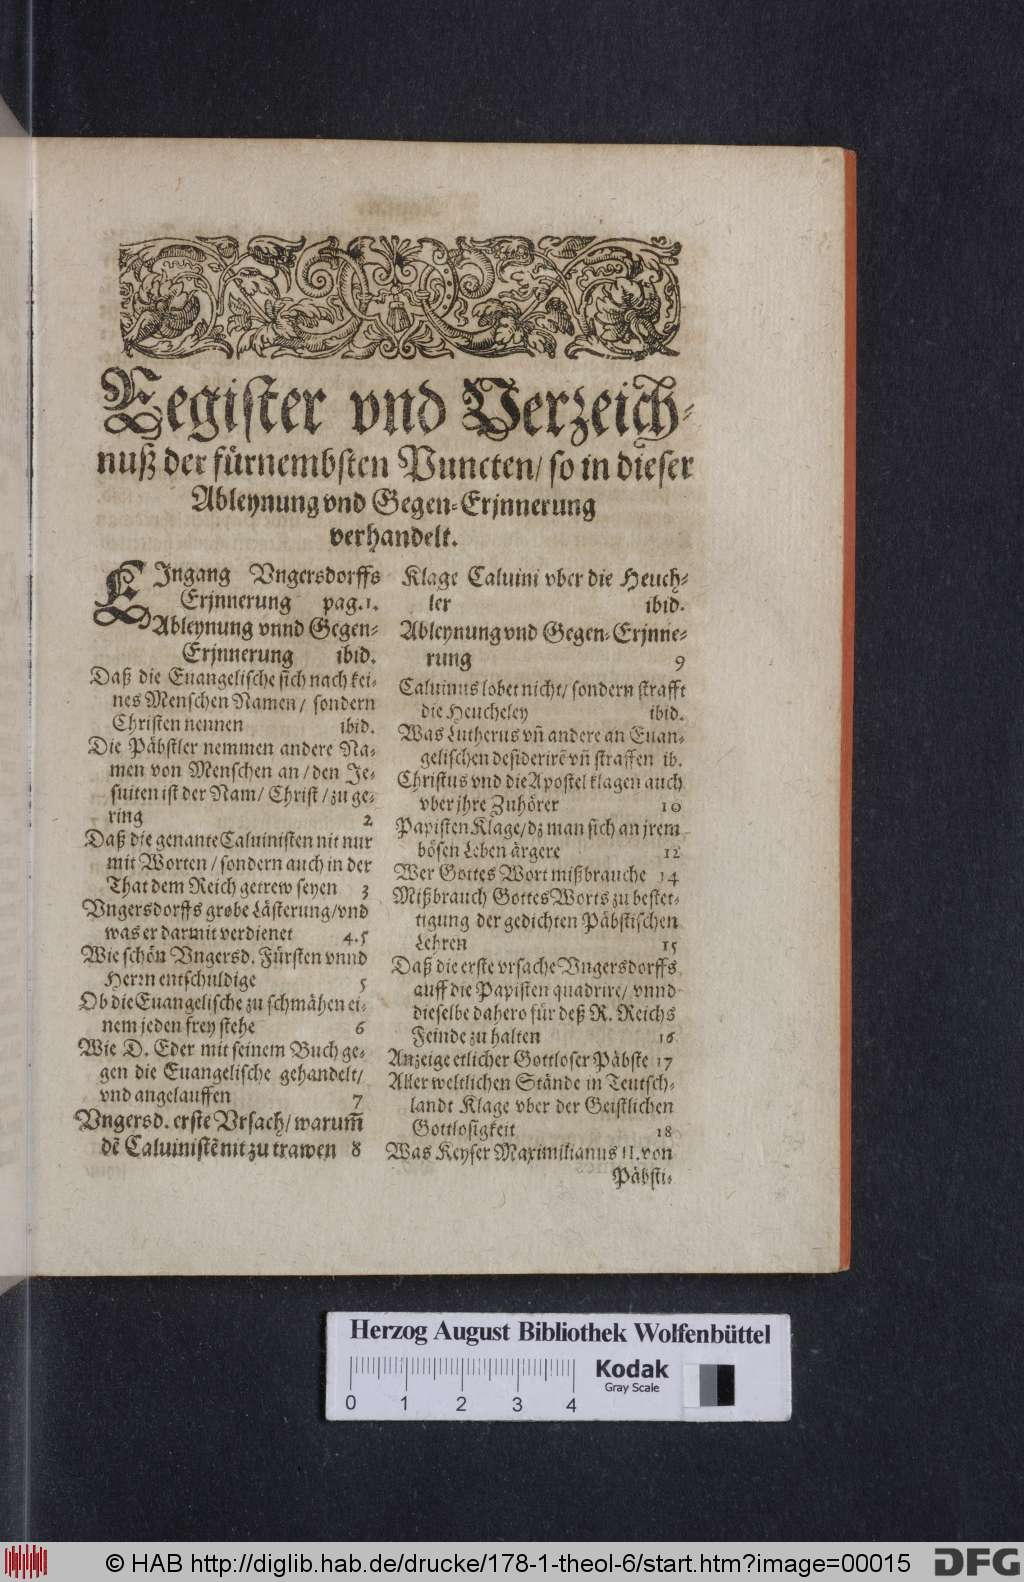 Register vnd Verzeich-
nuß der fürnembsten Puncten/ so in dieser
Ableynung vnd Gegen-Erjnnerung
verhandelt.
EJngang Vngersdorffs
Erjnnerung pag.1.
Ableynung vnnd Gegen-
Erjnnerung ibid.
Daß die Euangelische sich nach kei-
nes Menschen Namen/ sondern
Christen nennen ibid.
Die Päbstler nemmen andere Na-
men von Menschen an/ den Je-
suiten ist der Nam/ Christ/ zu ge-
ring 2
Daß die genante Caluinisten nit nur
mit Worten/ sondern auch in der
That dem Reich getrew seyen 3
Vngersdorffs grobe Lästerung/ vnd
was er darmit verdienet 4.5
Wie schön Vngersd. Fürsten vnnd
Herrn entschuldige 5
Ob die Euangelische zu schmähen ei-
nem jeden frey stehe 6
Wie D. Eder mit seinem Buch ge-
gen die Euangelische gehandelt/
vnd angelauffen 7
Vngersd. erste Vrsach/ warum̃
dẽ Caluinistẽ nit zu trawen 8
Klage Caluini vber die Heuch-
ler ibid.
Ableynung vnd Gegen-Erjnne-
rung 9
Caluinus lobet nicht/ sondern strafft
die Heucheley ibid.
Was Lutherus vñ andere an Euan-
gelischen desiderirẽ vñ straffen ib.
Christus vnd die Apostel klagen auch
vber jhre Zuhörer 10
Papisten Klage/ dz man sich an jrem
bösen Leben ärgere 12
Wer Gottes Wort mißbrauche 14
Mißbrauch Gottes Worts zu bestet-
tigung der gedichten Päbstischen
Lehren 15
Daß die erste vrsache Vngersdorffs
auff die Papisten quadrire/ vnnd
dieselbe dahero für deß R. Reichs
Feinde zu halten 16
Anzeige etlicher Gottloser Päbste 17
Aller weltlichen Stände in Teutsch-
landt Klage vber der Geistlichen
Gottlosigkeit 18
Was Keyser Maximilianus II. von
Päbsti-
Herzog August Bibliothek Wolfenbüttel
Kodak
Gray Scale
0 1 2 3 4
© HAB http://diglib.hab.de/drucke/178-1-theol-6/start.htm?image=00015
DFG